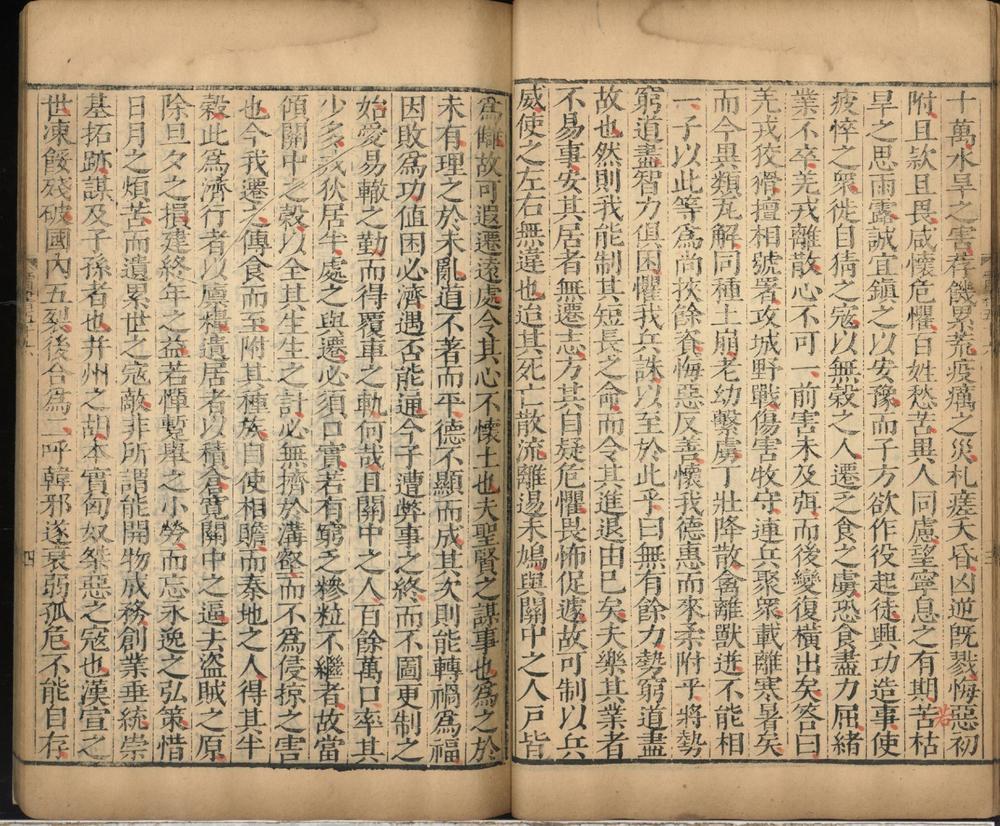 十萬水旱之害荐饑累荒疫癘之災札瘥夭昏凶逆既戮悔惡初
附且款且畏咸懷危懼百姓愁苦異人同慮望寧息之有期苦枯
若
旱之思雨露誠宜鎮之以安豫而子方欲作役起徒興功造事使
疲悴之衆徙自猜之寇以無穀之人遷乏食之虜恐食盡力屈緒
業不卒羌戎離散心不可一前害未及弭而後變復橫出矣答曰
羌戎狡猾擅相號署攻城野戰傷害牧守連兵聚衆載離寒暑矣
而今異類瓦解同種土崩老幼繫虜丁壯降散禽離獸迸不能相
一子以此等爲尚挾餘資悔惡反善懷我德惠而來柔附乎將勢
窮道盡智力俱困懼我兵誅以至於此乎曰無有餘力勢窮道盡
故也然則我能制其短長之命而令其進退由己矣夫樂其業者
不易事安其居者無遷志方其自疑危懼畏怖促遽故可制以兵
威使之左右無違也迨其死亡散流離逷未鳩與關中之人戸皆
爲讎故可遐遷遠處令其心不懷土也夫聖賢之謀事也爲之於
未有理之於未亂道不著而平德不顯而成其次則能轉禍爲福
因敗爲功値困必濟遇否能通今子遭弊事之終而不圖更制之
始愛易轍之勤而得覆車之軌何哉且關中之人百餘萬口率其
少多戎狄居半處之與遷必須口實若有窮乏糝粒不繼者故當
傾關中之穀以全其生生之計必無擠於溝壑而不爲侵掠之害
也今我遷之傳食而至附其種族自使相贍而秦地之人得其半
穀此爲濟行者以廩糧遺居者以積倉寬關中之逼去盜賊之原
除旦夕之損建終年之益若憚蹔舉之小勞而忘永逸之弘策惜
日月之煩苦而遺累世之寇敵非所謂能開物成務創業垂統崇
基拓跡謀及子孫者也并州之胡本實匈奴桀惡之寇也漢宣之
世凍餒殘破國內五裂後合爲二呼韓邪遂衰弱孤危不能自存
四